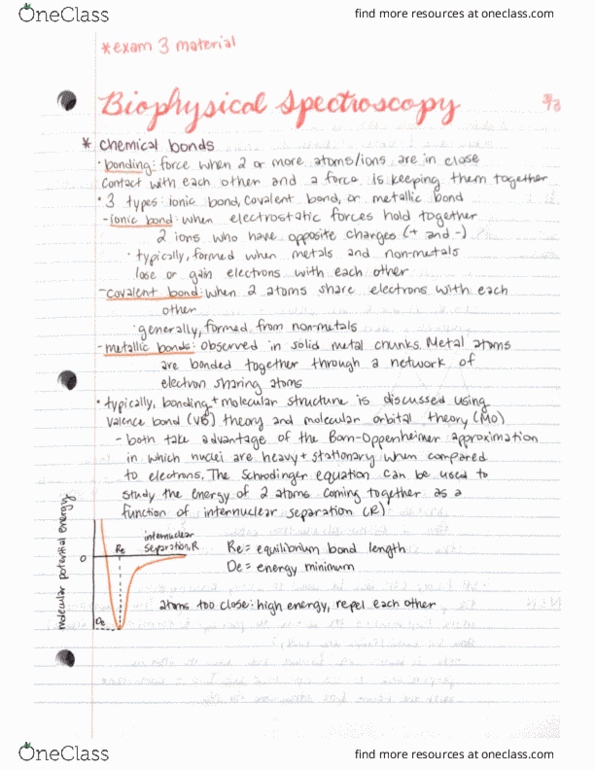 OneClass
find more resources at oneclass.com
*exam 3 material
Biophysical Spectroscopy
* Chemical bonds
· bonding: force when 2 or more atoms/ions are in close
contact with each other and a force is keeping them together
· 3 types: ionic bond, covalent bond, or metallic bond
- ionic bond: when electrostatic forces hold together
2 ions who have opposite charges (+ and -)
· typically, formed when metals and non-metals
lose or gain electrons with each other
- covalent bond: when 2 atoms share electrons with each
other
· generally, formed from non-metals
- metallic bonds: observed in solid metal chunks. Metal atoms
are bonded together through a network of
electron sharing atoms
· typically, bonding + molecular structure is discussed using
valence bond (VB) theory and molecular orbital theory (MO)
- both take advantage of the Born-Oppenheimer approximation
in which nuclei are heavy + stationary when compared
to electrons. The Schrodinger equation can be used to
study the energy of 2 atoms coming together as a
function of internuclear separation (R)
molecular potential energy
internuclear
separation, R
Re
0
De
Re = equilibrium bond length
De = energy minimum
atoms too close: high energy, repel each other
OneClass
find more resources at oneclass.com